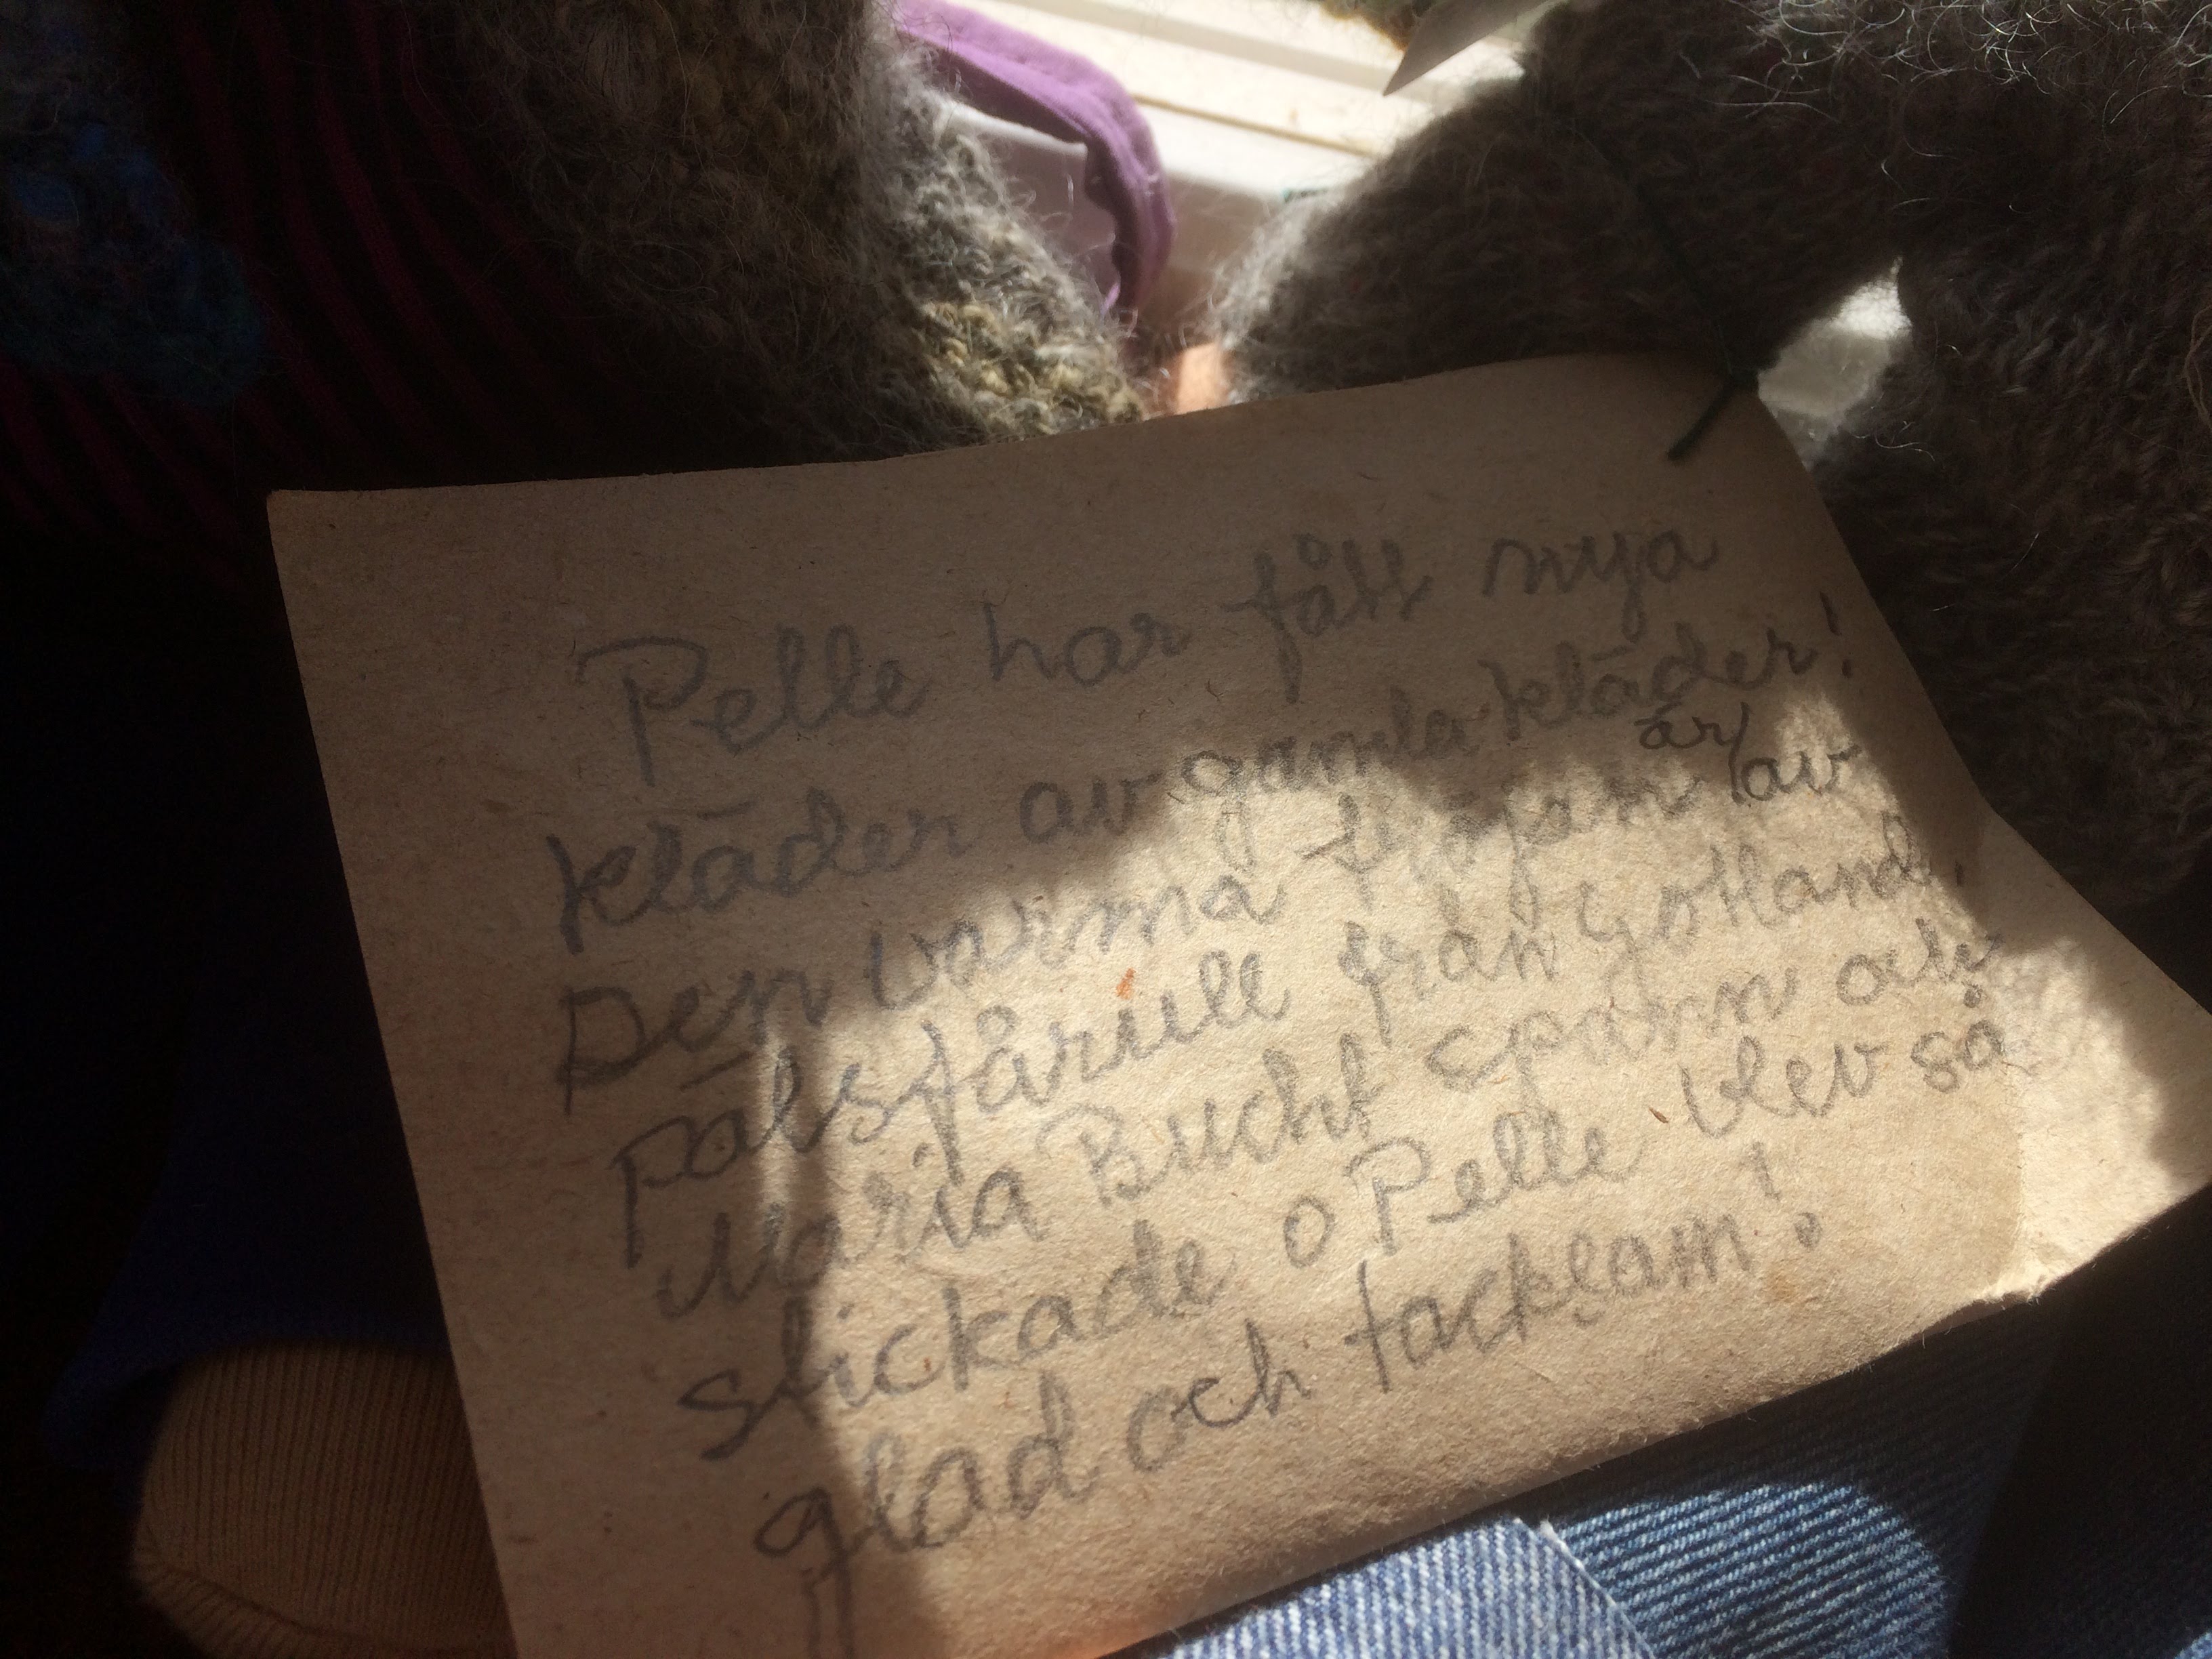 Pelle har fått nya
kläder av gamla kläder!
Den varma tröjan är av
pälsfårull från Gotland.
Maria Bucht spann och
stickade o Pelle blev så
glad och tacksam!